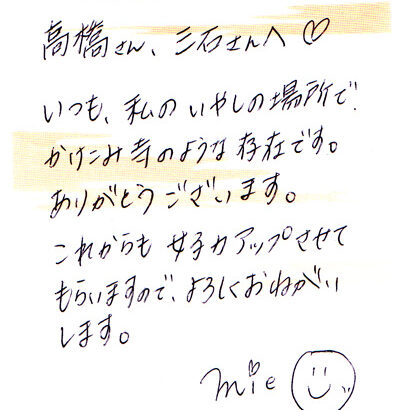 高橋さん、三石さんへ♡
いつも、私のいやしの場所で
かけこみ寺のような存在です。
ありがとうございます。
これからも女子力アップさせて
もらいますので、よろしくおねがい
します。
mie